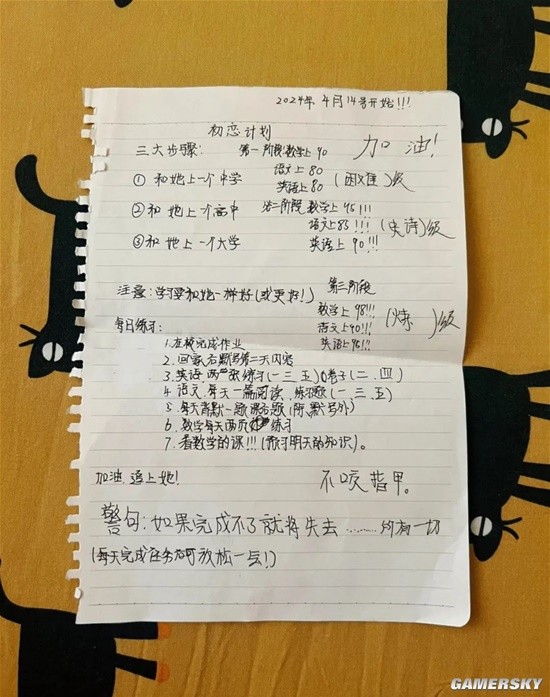 2024年4月14号开始!!!
初恋计划
加油!
三大步骤: 第一阶段:数学上90
语文上80
①和她上一个中学 英语上80 (困难)级
②和她上一个高中 第二阶段 数学上95!!!
语文上85!!! (史诗)级
③和她上一个大学 英语上90!!!
注意:学习要和她一样好(或更好!) 第三阶段
数学上98!!!
语文上90!!! (炼 )级
每日练习: 英语上95!!!
1.在校完成作业
2.回家右默写第二天内容
3.英语,两张练习(一三五)卷子(二、四)
4.语文,每天一篇阅读,练习题(一、三、五)
5.每天背默一题课右题(除默写外)
6.数学每天两页练习
7.看数学的课!!!(预习明天的知识)。
加油,追上她! 不咬指甲。
警句:如果完成不了就将失去………所有一切
(每天完成任务右可放松一点!)
GAMERSKY